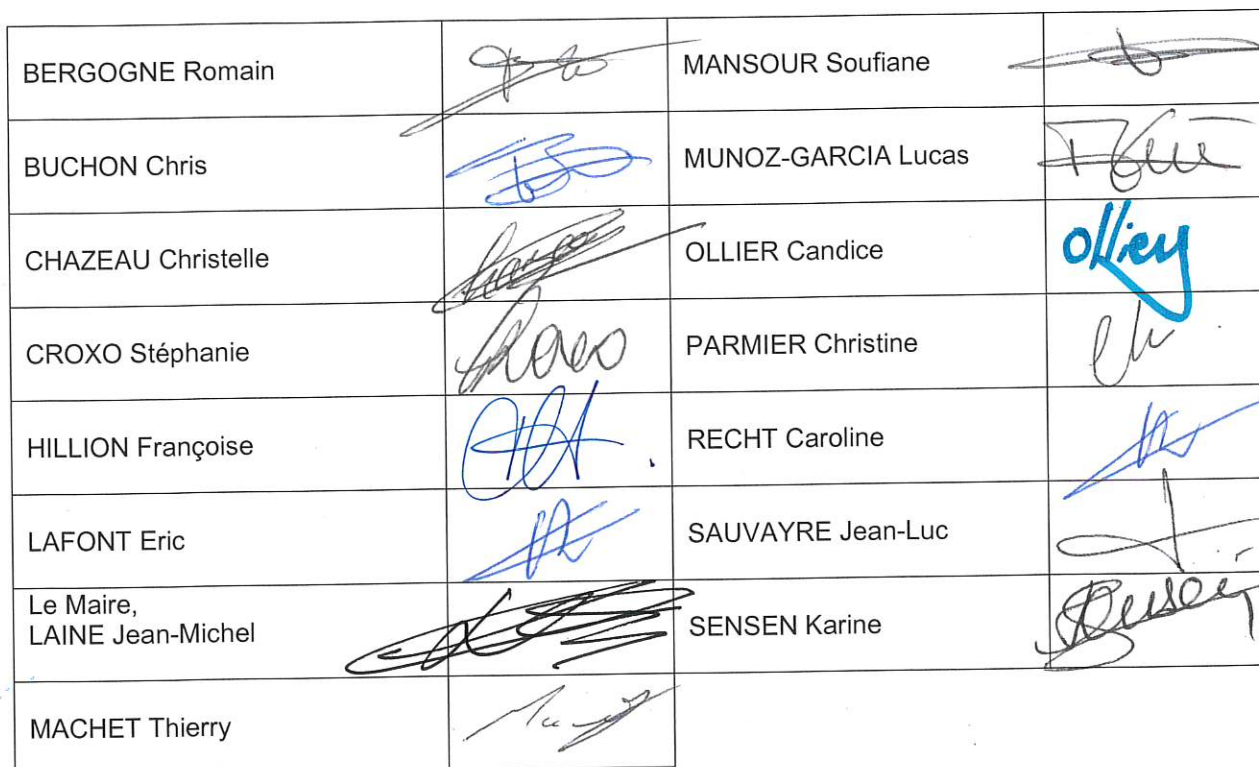 BERGOGNE Romain
MANSOUR Soufiane
BUCHON Chris
MUNOZ-GARCIA Lucas
CHAZEAU Christelle
OLLIER Candice
Ollier
CROXO Stéphanie
PARMIER Christine
HILLION Françoise
RECHT Caroline
LAFONT Eric
SAUVAYRE Jean-Luc
Le Maire,
LAINE Jean-Michel
SENSEN Karine
MACHET Thierry